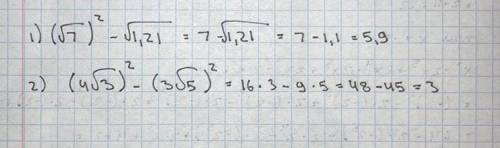 1) (√7)² - √1,21 = 7 - √1,21 = 7 - 1,1 = 5,9
2) (4√3)² - (3√5)² = 16·3 - 9·5 = 48 - 45 = 3